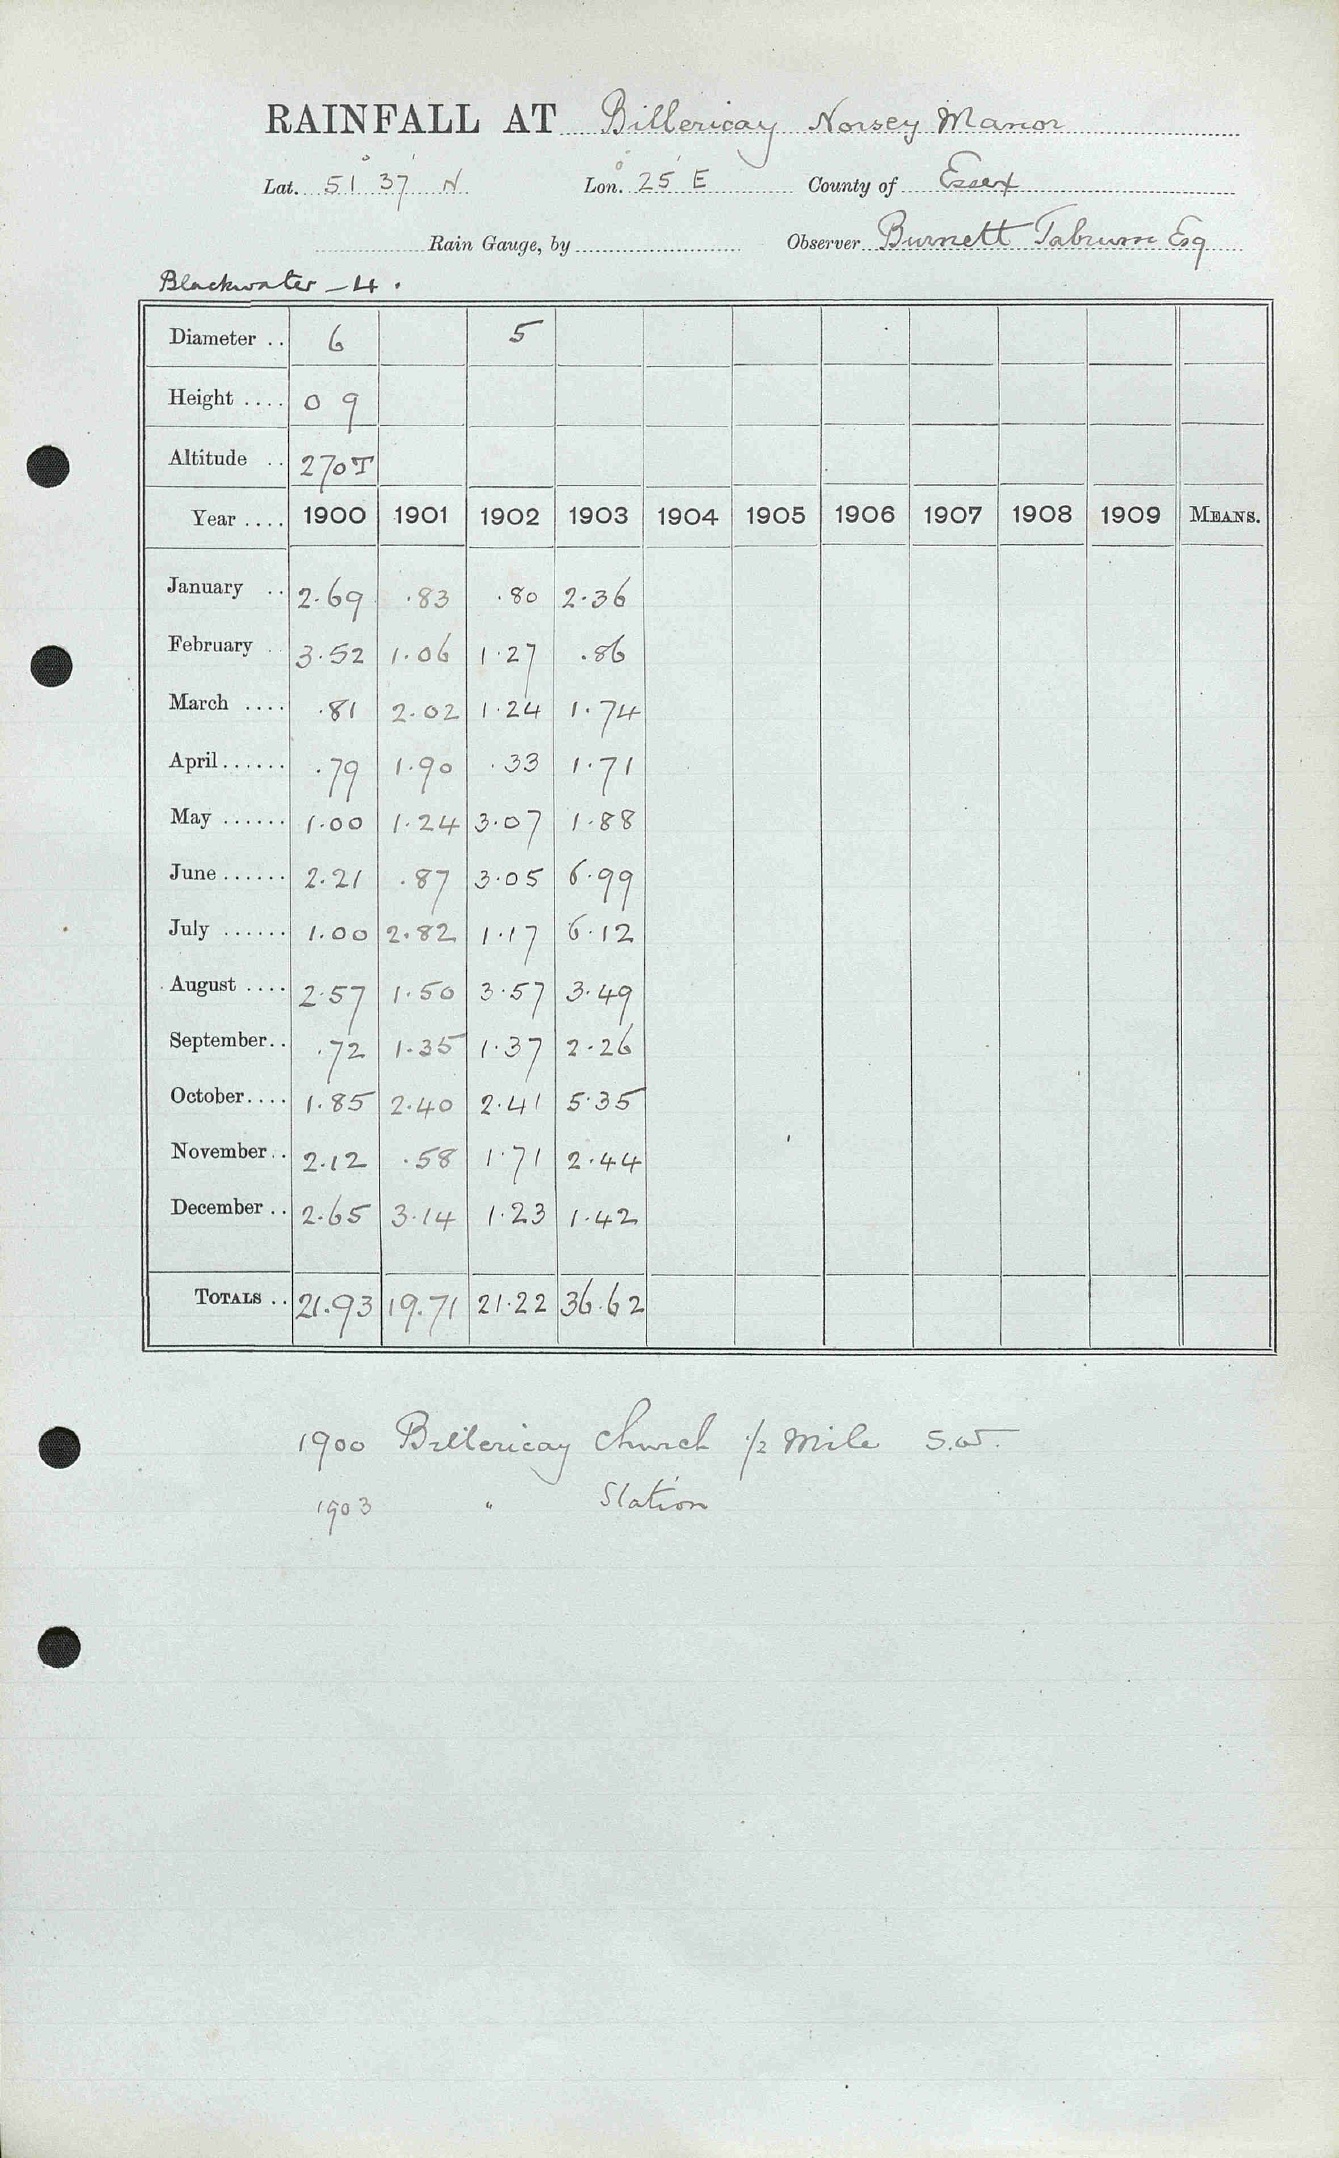 RAINFALL AT Billericay Norsey Manor
Lat. 51° 37' N Lon. ° 25' E County of Essex
Rain Gauge, by Observer Burnett Tabrum Esq
Blackwater - 4.
Diameter .. 6 5
Height .... 0 9
Altitude .. 270T
Year .... 1900 1901 1902 1903 1904 1905 1906 1907 1908 1909 MEANS.
January .. 2.69 .83 .80 2.36
February .. 3.52 1.06 1.27 .86
March .... .81 2.02 1.24 1.74
April...... .79 1.90 .33 1.71
May ...... 1.00 1.24 3.07 1.88
June ...... 2.21 .87 3.05 6.99
July ...... 1.00 2.82 1.17 6.12
August .... 2.57 1.50 3.57 3.49
September.. .72 1.35 1.37 2.26
October.... 1.85 2.40 2.41 5.35
November.. 2.12 .58 1.71 2.44
December .. 2.65 3.14 1.23 1.42
TOTALS .. 21.93 19.71 21.22 36.62
1900 Billericay Church 1/2 Mile S.W.
1903 " Station